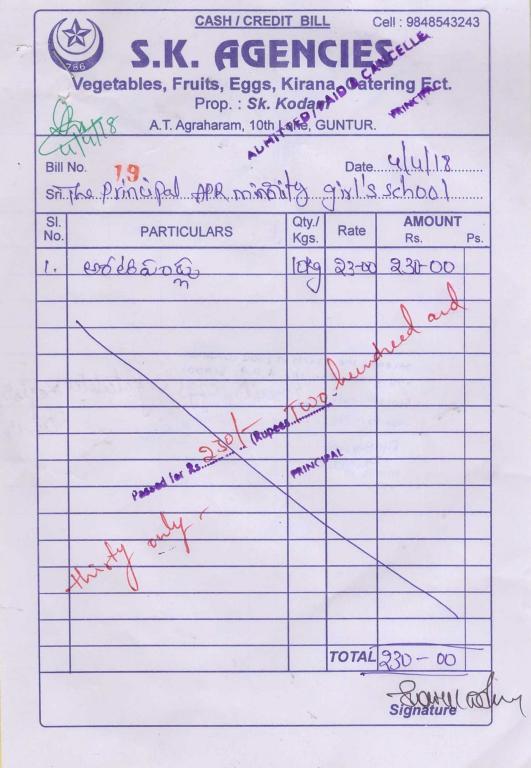 CASH / CREDIT BILL
Cell : 9848543243
786
S.K. AGENCIES
Vegetables, Fruits, Eggs, Kirana, Catering Ect.
Prop. : Sk. Kodar
A.T. Agraharam, 10th Line, GUNTUR.
ADMITTED / PAID & CANCELLE
PRINCIPAL
4/4/18
Bill No. 19 Date 4/4/18
Sri The Principal APR minority girl's school
Sl. No. PARTICULARS Qty./ Kgs. Rate AMOUNT Rs. Ps.
1. 10kg 23-00 230-00
Passed for Rs. 230/- (Rupees Two hundreed and
PRINCIPAL
thirty only -
TOTAL 230-00
Signature